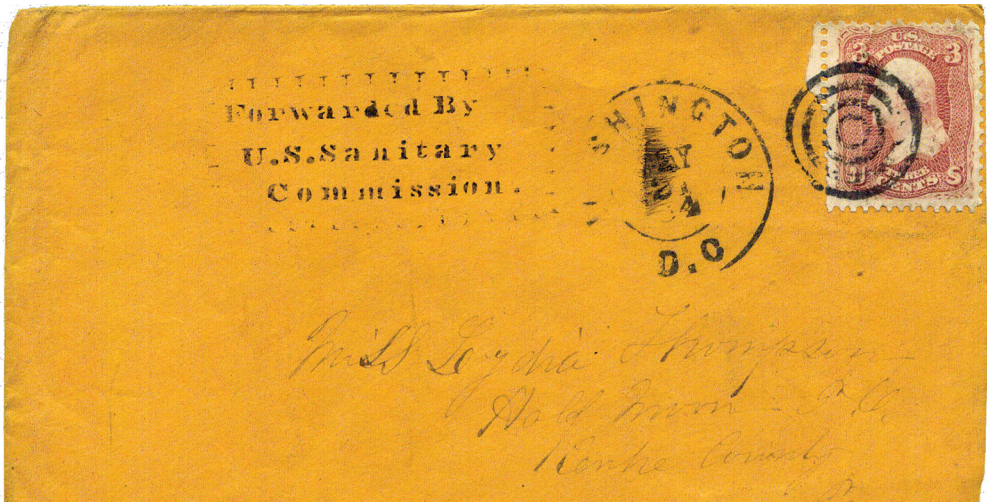 Forwarded By
U.S.Sanitary
Commission.
SHINGTON
D.C
U.S.
POSTAGE
3 3
CENTS
Miss Lydia Thompson
Half Moon P.O.
County